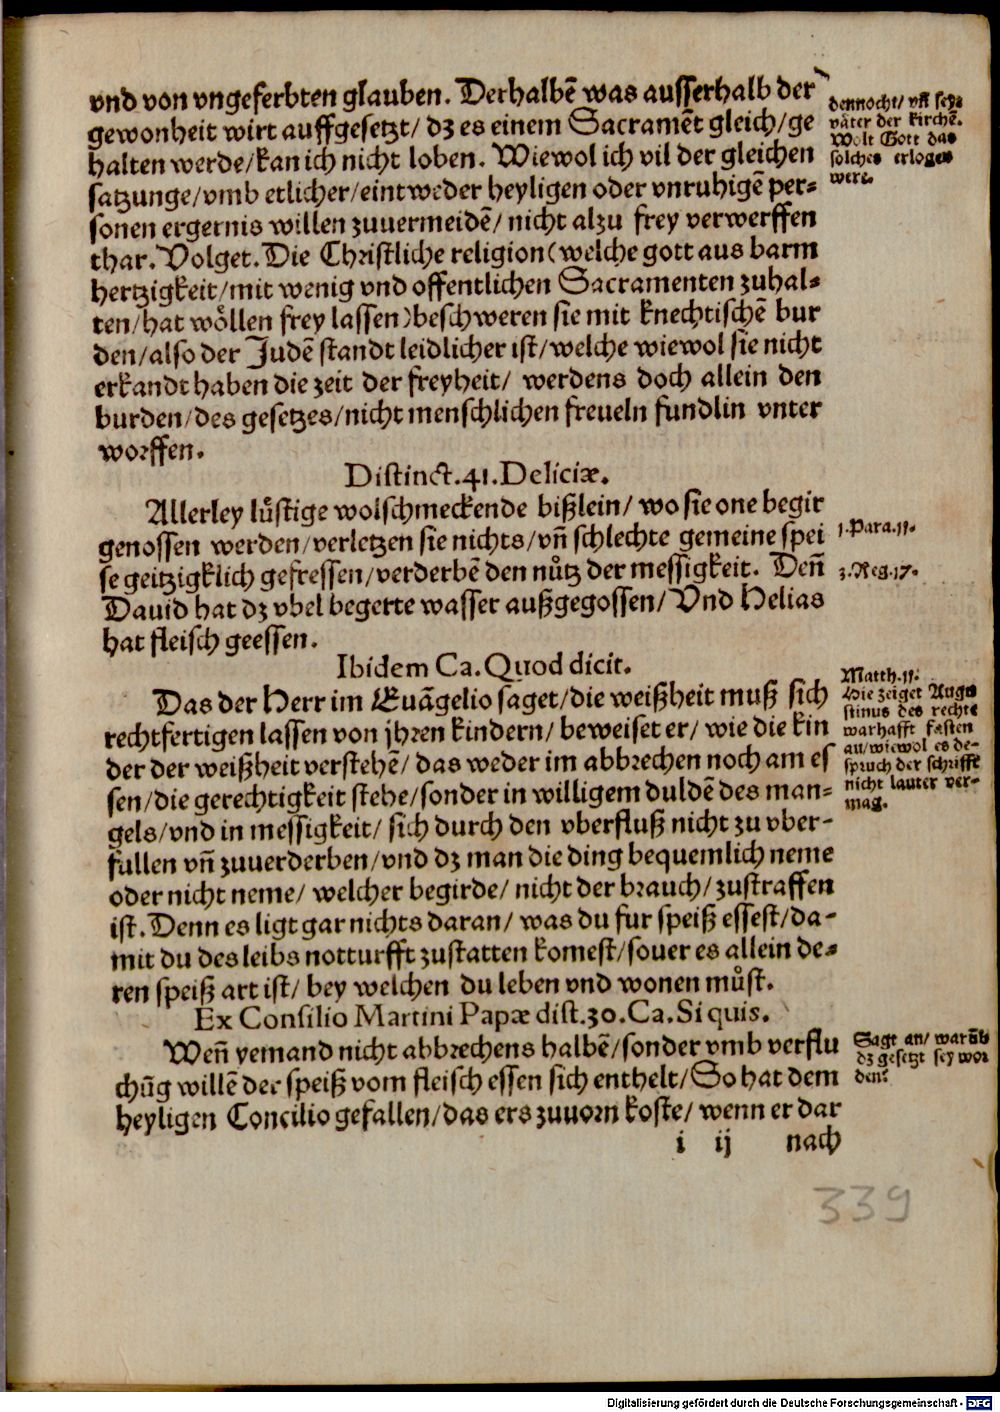 vnd von vngeferbten glauben. Derhalbē was ausserhalb der
gewonheit wirt auffgesetzt/ dz es einem Sacramēt gleich/ge
halten werde/kan ich nicht loben. Wiewol ich vil der gleichen
satzunge/vmb etlicher/eintweder heyligen oder vnruhigē per-
sonen ergernis willen zuuermeidē/ nicht alzu frey verwerffen
thar. Volget. Die Christliche religion (welche gott aus barm
hertzigkeit/mit wenig vnd offentlichen Sacramenten zuhal-
ten/hat wöllen frey lassen) beschweren sie mit knechtischē bur
den/also der Judē standt leidlicher ist/welche wiewol sie nicht
erkandt haben die zeit der freyheit/ werdens doch allein den
burden/des gesetzes/nicht menschlichen freueln fundlin vnter
worffen.
dennocht/ vñ seye
väter der kirchē.
Wolt Gott das
solches erlogē
were.
Distinct.41.Deliciæ.
Allerley lůstige wolschmeckende bißlein/ wo sie one begir
genossen werden/verletzen sie nichts/vñ schlechte gemeine spei
se geitzigklich gefressen/verderbē den nůtz der messigkeit. Deñ
Dauid hat dz vbel begerte wasser außgegossen/ Vnd Helias
hat fleisch geessen.
1.Para.11.
3.Reg.17.
Ibidem Ca. Quod dicit.
Das der Herr im Euāgelio saget/die weißheit muß sich
rechtfertigen lassen von jhren kindern/ beweiset er/ wie die kin
der der weißheit verstehē/ das weder im abbrechen noch am es
sen/die gerechtigkeit stehe/sonder in willigem duldē des man-
gels/vnd in messigkeit/ sich durch den vberfluß nicht zu vber-
fullen vñ zuuerderben/vnd dz man die ding bequemlich neme
oder nicht neme/ welcher begirde/ nicht der brauch/ zustraffen
ist. Denn es ligt gar nichts daran/ was du fur speiß essest/da-
mit du des leibs notturfft zustatten komest/souer es allein de-
ren speiß art ist/ bey welchen du leben vnd wonen můst.
Matth.11.
Hie zeiget Augu
stinus des rechtē
warhafft fasten
an/wiewol es de-
spruch der schrifft
nicht lauter ver-
mag.
Ex Consilio Martini Papæ dist.30.Ca.Si quis.
Weñ yemand nicht abbrechens halbē/sonder vmb verflu
chūg willē der speiß vom fleisch essen sich enthelt/ So hat dem
heyligen Concilio gefallen/das ers zuuorn koste/ wenn er dar
Sagt an/ warūb
dz gesetzt sey wor
den?
i ij nach
339
Digitalisierung gefördert durch die Deutsche Forschungsgemeinschaft - DFG